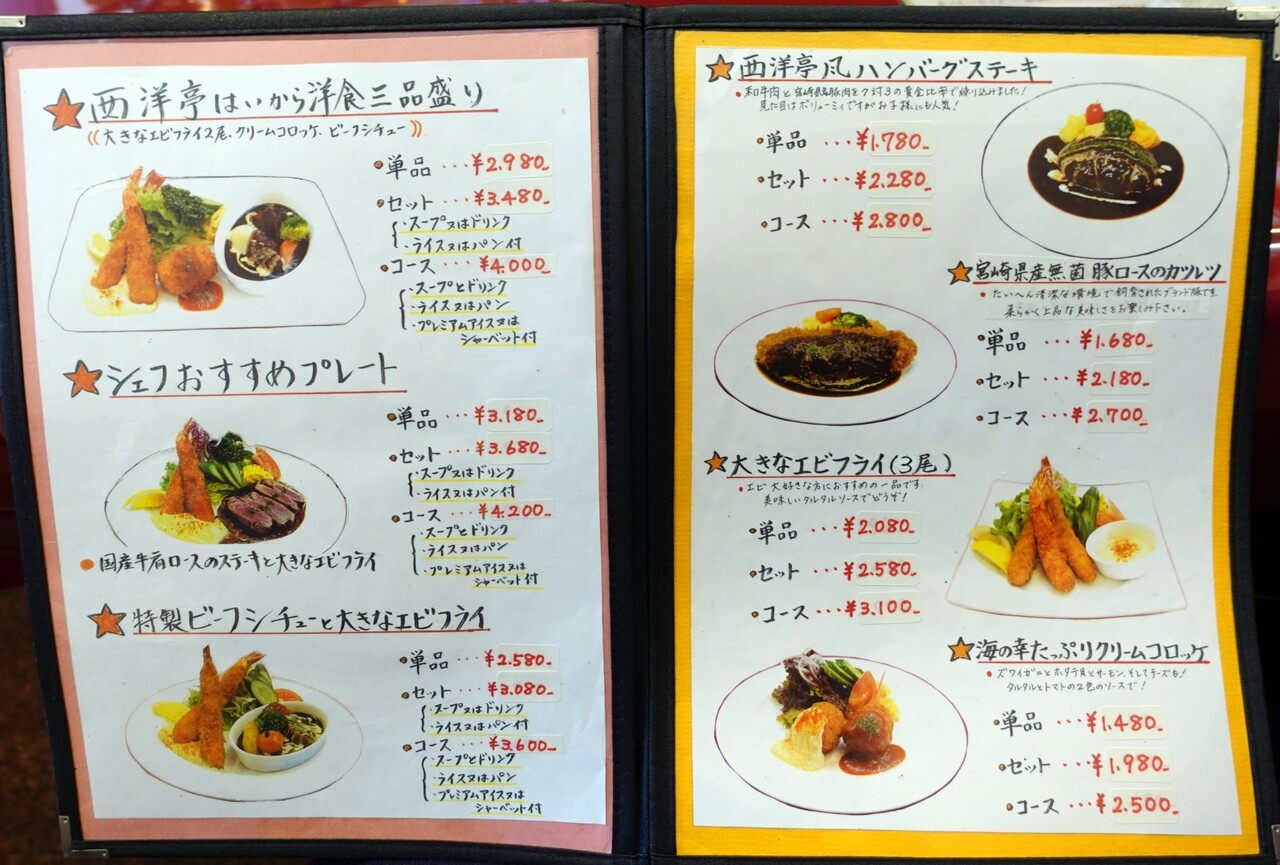 西洋亭はいから洋食三品盛り
((大きなエビフライ2尾、クリームコロッケ、ビーフシチュー))
・単品 ・・・¥2.980-
・セット ・・・¥3.480-
・スープ又はドリンク
・ライス又はパン付
・コース ・・・¥4.000-
・スープとドリンク
・ライス又はパン
・プレミアムアイス又は
シャーベット付
シェフおすすめプレート
・単品 ・・・¥3.180-
・セット ・・・¥3.680-
・スープ又はドリンク
・ライス又はパン付
・コース ・・・¥4.200-
・スープとドリンク
・ライス又はパン
・プレミアムアイス又は
シャーベット付
・国産牛肩ロースのステーキと大きなエビフライ
特製ビーフシチューと大きなエビフライ
・単品 ・・・¥2.580-
・セット ・・・¥3.080-
・スープ又はドリンク
・ライス又はパン付
・コース ・・・¥3.600-
・スープとドリンク
・ライス又はパン
・プレミアムアイス又は
シャーベット付
西洋亭風ハンバーグステーキ
・和牛肉と宮崎県産豚肉を7対3の黄金比率で練り込みました!
見た目はボリューミィですがお子様にも人気!
・単品 ・・・¥1.780-
・セット ・・・¥2.280-
・コース ・・・¥2.800-
宮崎県産無菌豚ロースのカツレツ
・たいへん清潔な環境で飼育されたブランド豚です。
柔らかく上品な美味しさをお楽しみ下さい。
・単品 ・・・¥1.680-
・セット ・・・¥2.180-
・コース ・・・¥2.700-
大きなエビフライ(3尾)
・エビ大好きな方におすすめの一品です
美味しいタルタルソースでどうぞ!
・単品 ・・・¥2.080-
・セット ・・・¥2.580-
・コース ・・・¥3.100-
海の幸たっぷりクリームコロッケ
・ズワイガニとホタテ貝とサーモン、そしてチーズも!
タルタルとトマトの2色のソースで!
・単品 ・・・¥1.480-
・セット ・・・¥1.980-
・コース ・・・¥2.500-